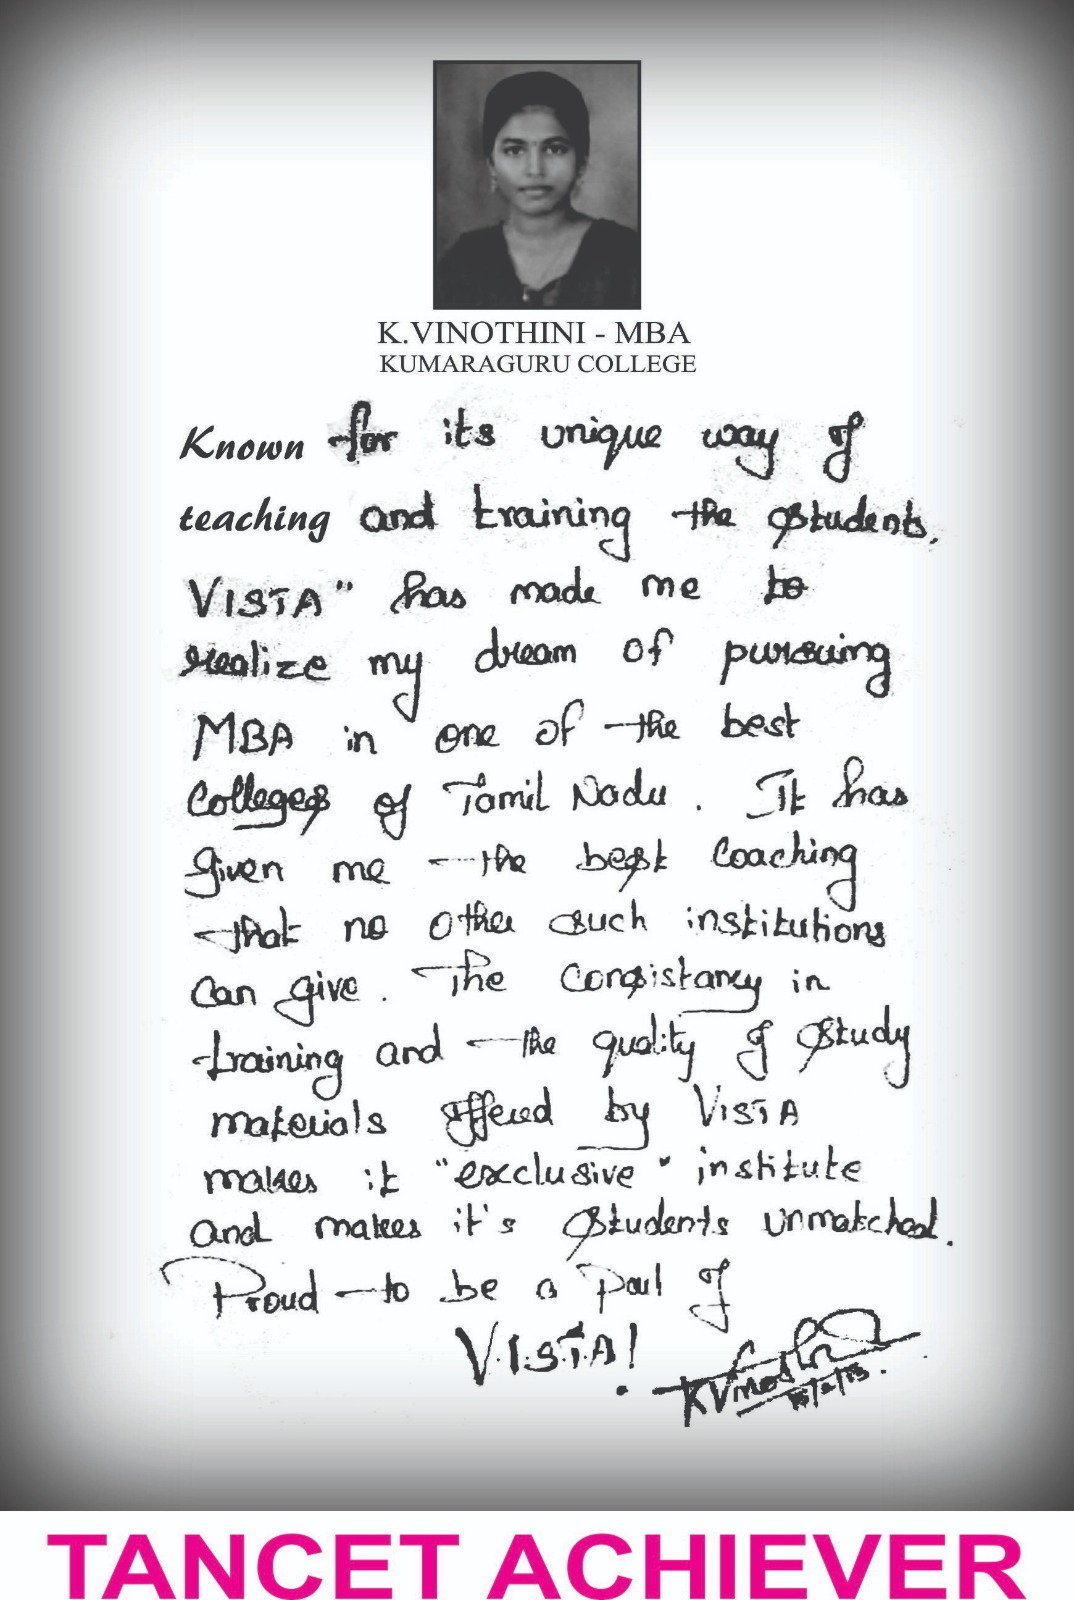 K.VINOTHINI - MBA
KUMARAGURU COLLEGE
Known for its unique way of
teaching and training the students,
VISTA" has made me to
realize my dream of pursuing
MBA in one of the best
Colleges of Tamil Nadu. It has
given me the best coaching
that no other such institutions
can give. The consistancy in
training and the quality of study
materials offered by VISTA
makes it "exclusive" institute
and makes it's students unmatched.
Proud to be a part of
VISTA!
TANCET ACHIEVER